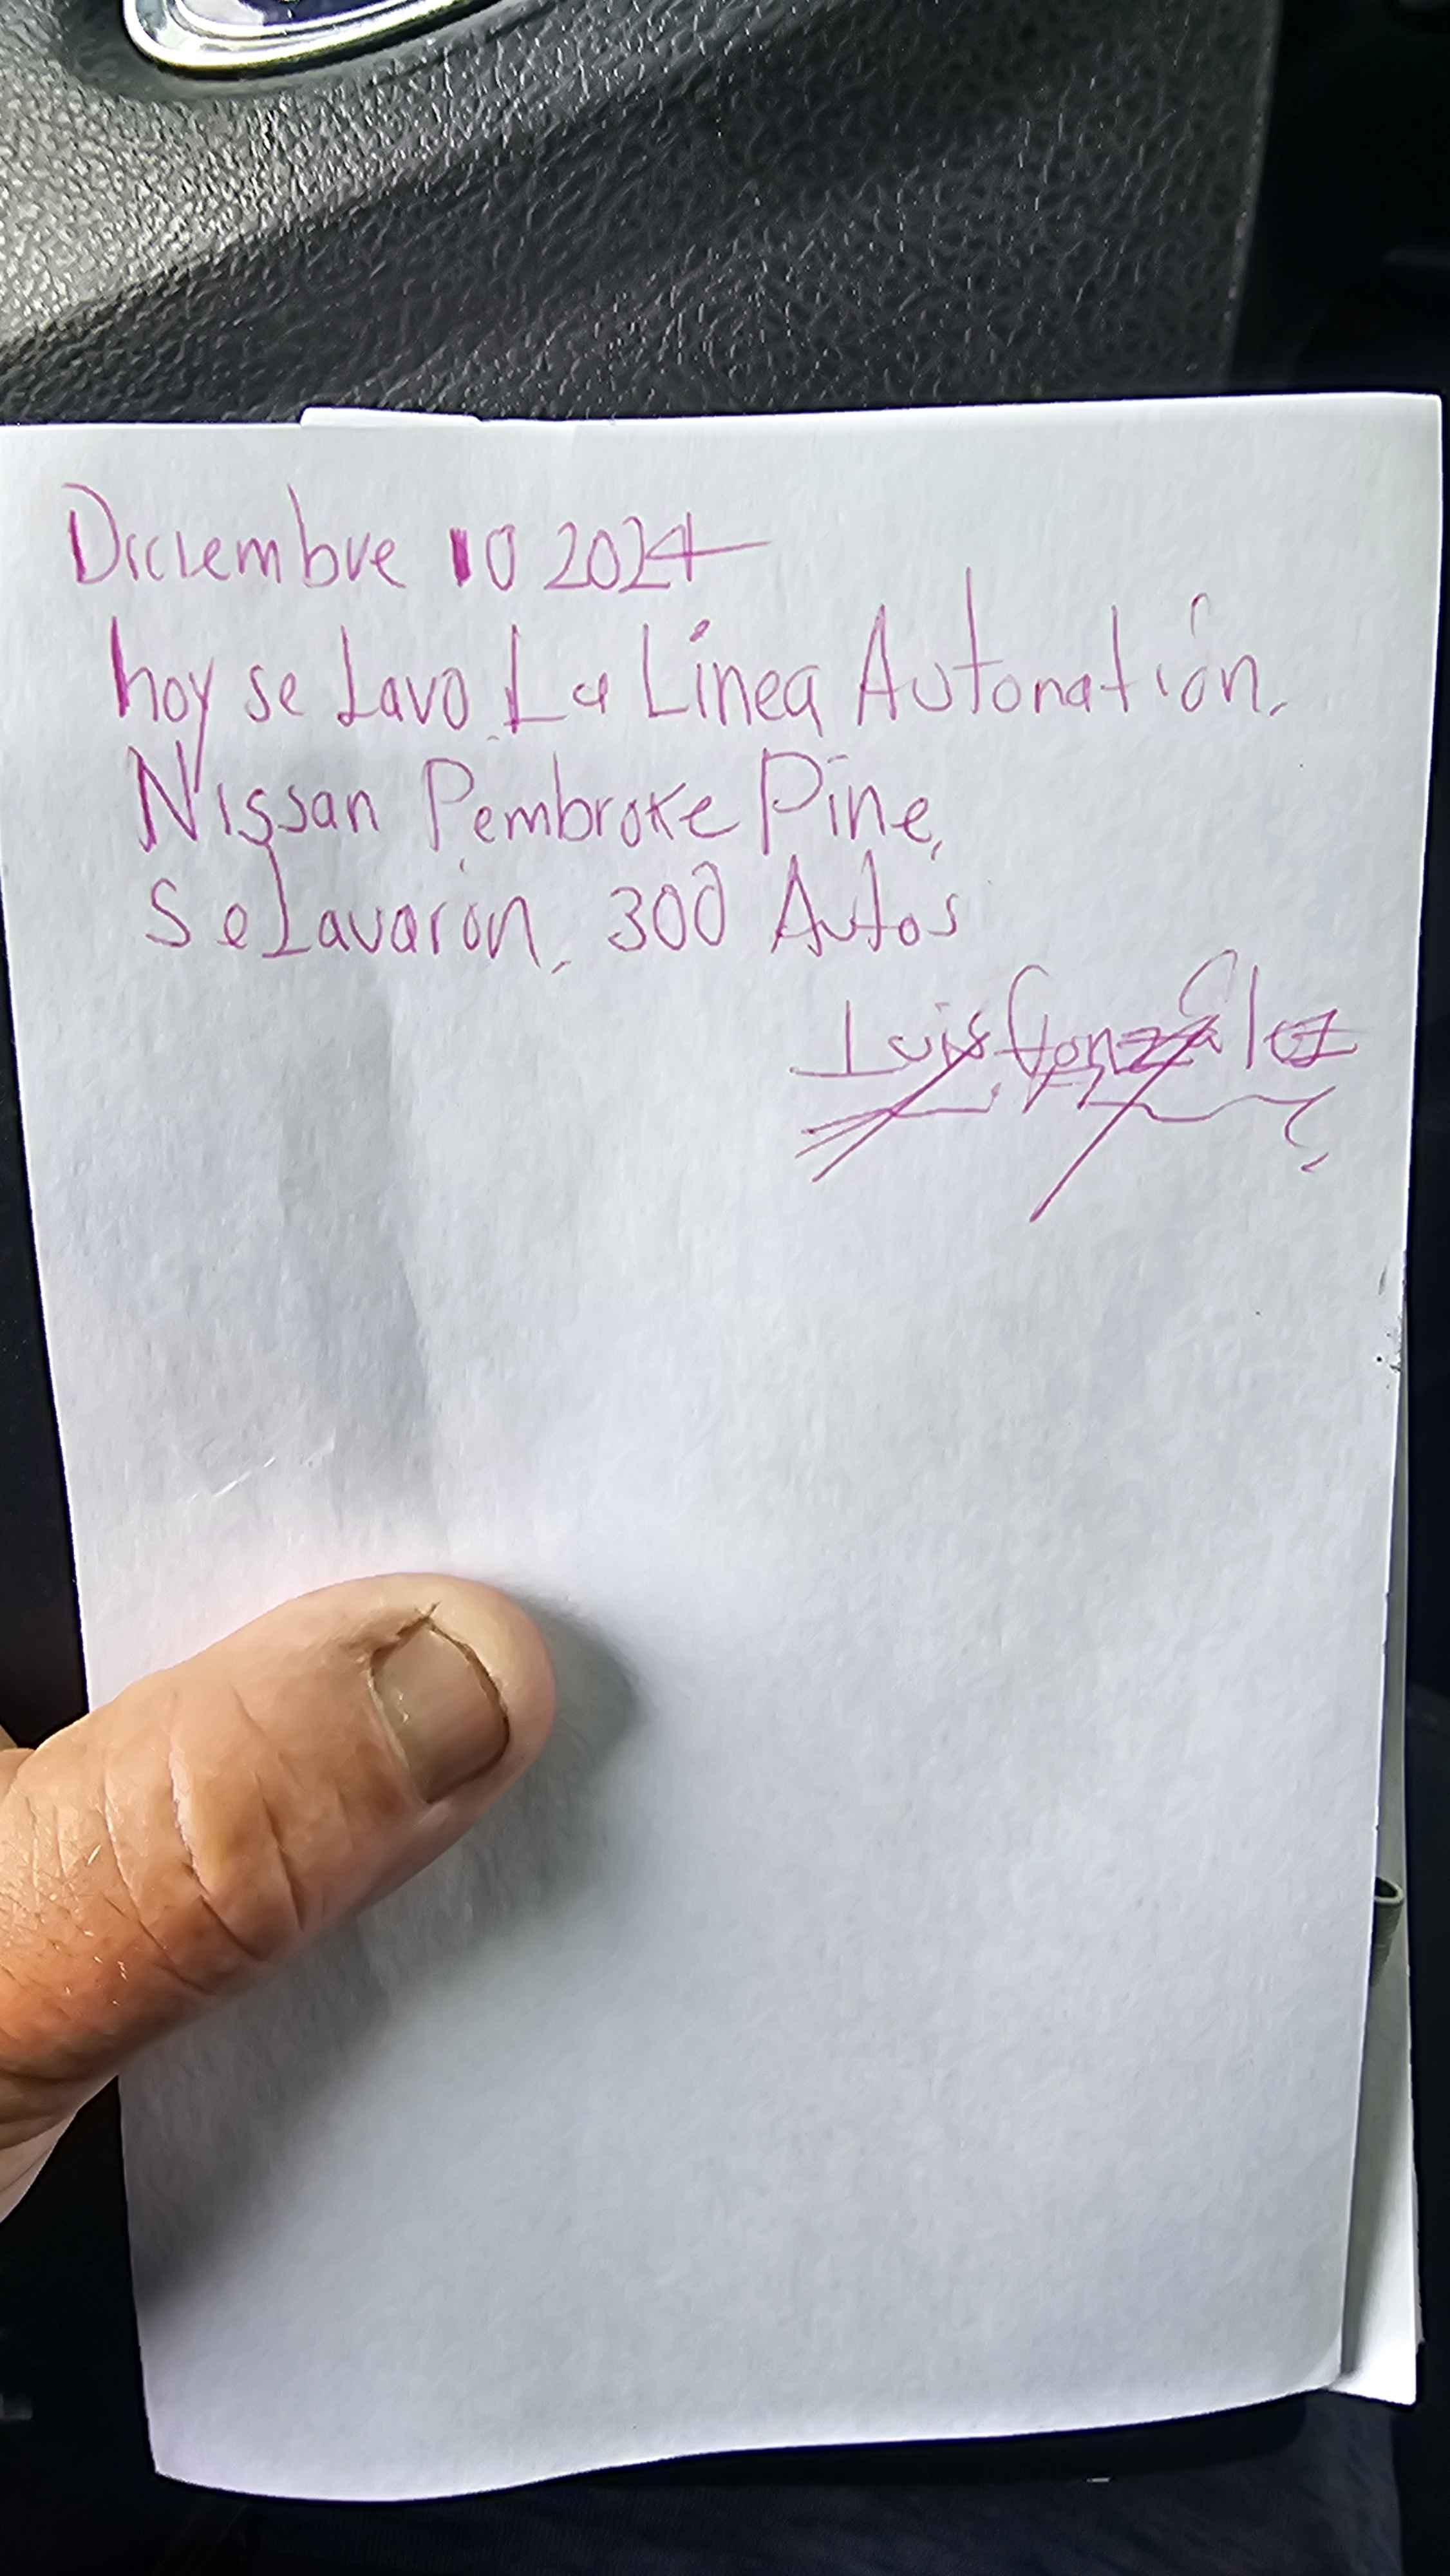 Diciembre 10 2024
hoy se Lavo La Línea Autonatión,
Nissan Pembroke Pine,
Se Lavarón, 300 Autos
Luis González